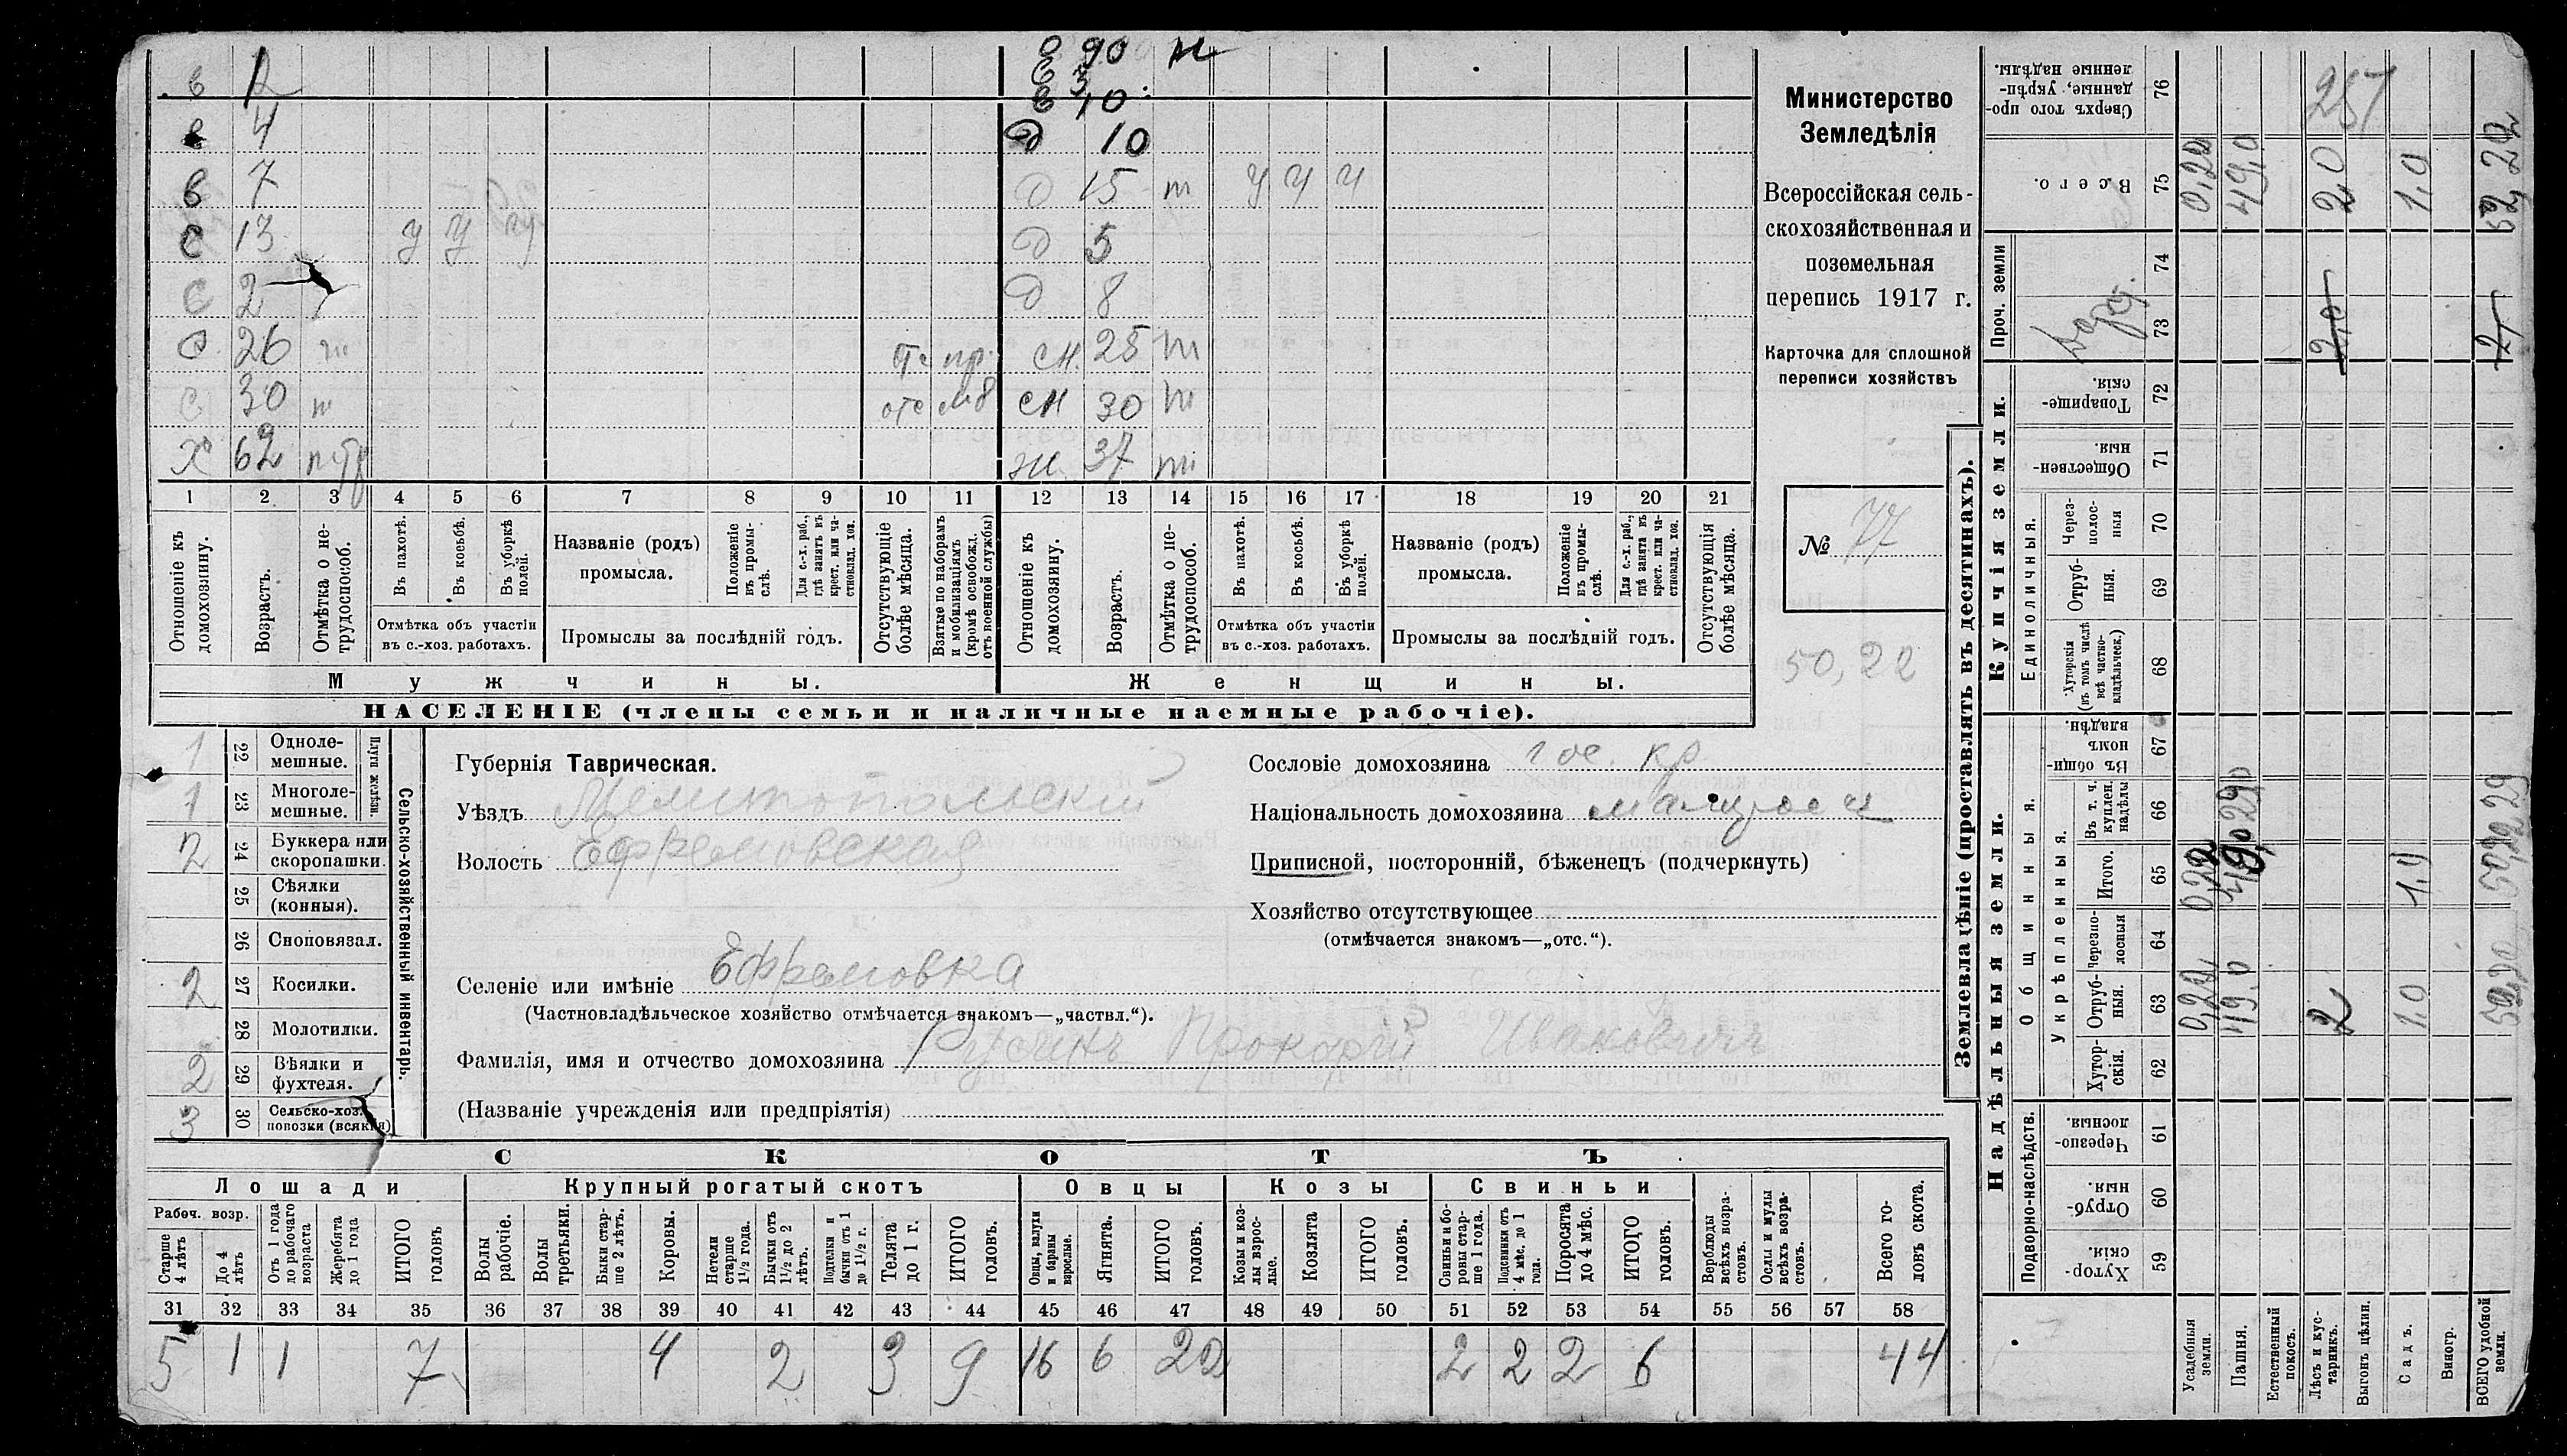 Министерство
Земледѣлія
Всероссійская сель-
скохозяйственная и
поземельная
перепись 1917 г.
Карточка для сплошной
переписи хозяйствъ
№ 77
50,22
в 12
в 4
в 7
с 13 у у
с 2
с 26 отс
с 30 отс
х 62
90 н
3
в 10
д 10
д 15 т ч ч ч
д 5
д 8
сн. 25 т
сн 30 т
ж. 37 т
1 2 3 4 5 6 7 8 9 10 11 12 13 14 15 16 17 18 19 20 21
Отношеніе къ домохозяину.
Возрастъ.
Отмѣтка о не-трудоспособ.
Въ пахотѣ.
Въ косьбѣ.
Въ уборкѣ полей.
Отмѣтка объ участіи
въ с.-хоз. работахъ.
Названіе (родъ)
промысла.
Положеніе въ промы-слѣ.
Для с.-х. раб., гдѣ занятъ въ крест. или ча-стновлад. хоз.
Промыслы за послѣдній годъ.
Отсутствующіе болѣе мѣсяца.
Взятые по наборамъ и мобилизаціямъ (кромѣ освобожд. отъ военной службы)
Отношеніе къ домохозяину.
Возрастъ.
Отмѣтка о не-трудоспособ.
Въ пахотѣ.
Въ косьбѣ.
Въ уборкѣ полей.
Отмѣтка объ участіи
въ с.-хоз. работахъ.
Названіе (родъ)
промысла.
Положеніе въ промы-слѣ.
Для с.-х. раб., гдѣ занята въ крест. или ча-стновлад. хоз.
Промыслы за послѣдній годъ.
Отсутствующія болѣе мѣсяца.
Мужчины.
Женщины.
НАСЕЛЕНІЕ (члены семьи и наличные наемные рабочіе).
Сельско-хозяйственный инвентарь.
Плуги желѣзн.
1 22 Одноле-мешные.
1 23 Многоле-мешные.
2 24 Буккера или скоропашки.
25 Сѣялки (конныя).
26 Сноповязал.
2 27 Косилки.
28 Молотилки.
2 29 Вѣялки и фухтеля.
3 30 Сельско-хоз. повозки (всякія)
Губернія Таврическая.
Уѣздъ Мелитопольскій
Волость Ефремовская
Селеніе или имѣніе Ефремовка
(Частновладѣльческое хозяйство отмѣчается знакомъ—„частвл.“).
Фамилія, имя и отчество домохозяина Русинъ Прокофій Ивановичъ
(Названіе учрежденія или предпріятія)
Сословіе домохозяина гос. кр
Національность домохозяина малоросъ
Приписной, посторонній, бѣженецъ (подчеркнуть)
Хозяйство отсутствующее
(отмѣчается знакомъ—„отс.“).
СКОТЪ
Лошади
Крупный рогатый скотъ
Овцы
Козы
Свиньи
Рабоч. возр.
Старше 4 лѣтъ
До 4 лѣтъ
Отъ 1 года до рабочаго возраста
Жеребята до 1 года
ИТОГО головъ
Волы рабочіе.
Волы третьяки.
Быки стар-ше 2 лѣтъ.
Коровы.
Нетели старше 1½ года.
Бычки отъ 1½ до 2 лѣтъ.
Подтелки и бычки отъ 1 до 1½ г.
Телята до 1 г.
ИТОГО головъ.
Овцы, валухи и бараны взрослые.
Ягнята.
ИТОГО головъ.
Козы и коз-лы взрос-лые.
Козлята
ИТОГО головъ.
Свиньи и бо-ровы стар-ше 1 года.
Подсвинки отъ 4 мѣс. до 1 года.
Поросята до 4 мѣс.
ИТОГО головъ.
Верблюды всѣхъ возра-стовъ.
Ослы и мулы всѣхъ возра-стовъ.
Всего го-ловъ скота.
31 32 33 34 35 36 37 38 39 40 41 42 43 44 45 46 47 48 49 50 51 52 53 54 55 56 57 58
5 1 1 7 4 2 3 9 16 6 22 2 2 2 6 44
Землевладѣніе (проставлять въ десятинахъ).
Надѣльныя земли.
Купчія земли.
Проч. земли
Подворно-наслѣдств.
Общинныя.
Укрѣпленныя.
Единоличныя.
Хутор-скія. 59
Отруб-ныя. 60
Черезпо-лосныя. 61
Хутор-скія. 62
Отруб-ныя. 63
Черезпо-лосныя 64
Итого. 65
Въ т. ч. куплен. надѣлы 66
Въ общин-номъ владѣн. 67
Хуторскія (въ томъ числѣ всѣ частно-владѣльческ.) 68
Отруб-ныя. 69
Через-полос-ныя 70
Обществен-ныя. 71
Товарище-скія. 72
73
74
Всего. 75
Сверхъ того про-данные, укрѣп-ленные надѣлы. 76
Усадебныя земли. 0,22 0,22 0,22
Пашня. 49,0 49,0 49,0
Естественный покосъ.
Лѣсъ и кус-тарникъ. 2 2,0 2,0 257
Выгонъ цѣлин.
Садъ. 1,0 1,0 1,0
Виногр.
ВСЕГО удобной земли. 2 52,22